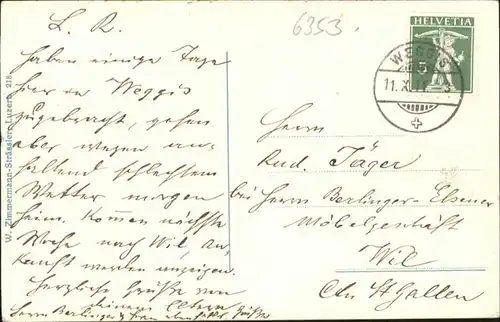 6353
L. R.
haben einige Tage
hier in Weggis
zugebracht, gehen
aber wegen an-
haltend schlechtem
Wetter morgen
heim. Kommen nächste
Woche nach Wil, An-
kunft werden anzeigen.
Herzliche Grüße von
deinen Eltern
Herrn Berlinger & Frau ebenfalls Grüße
W. Zimmermann-Strässler, Luzern. 218
HELVETIA
5
WEGGIS
11. X
Herrn
Rud. Jäger
bei Herrn Berlinger-Elsener
Möbelgeschäft
Wil
Ctn St Gallen